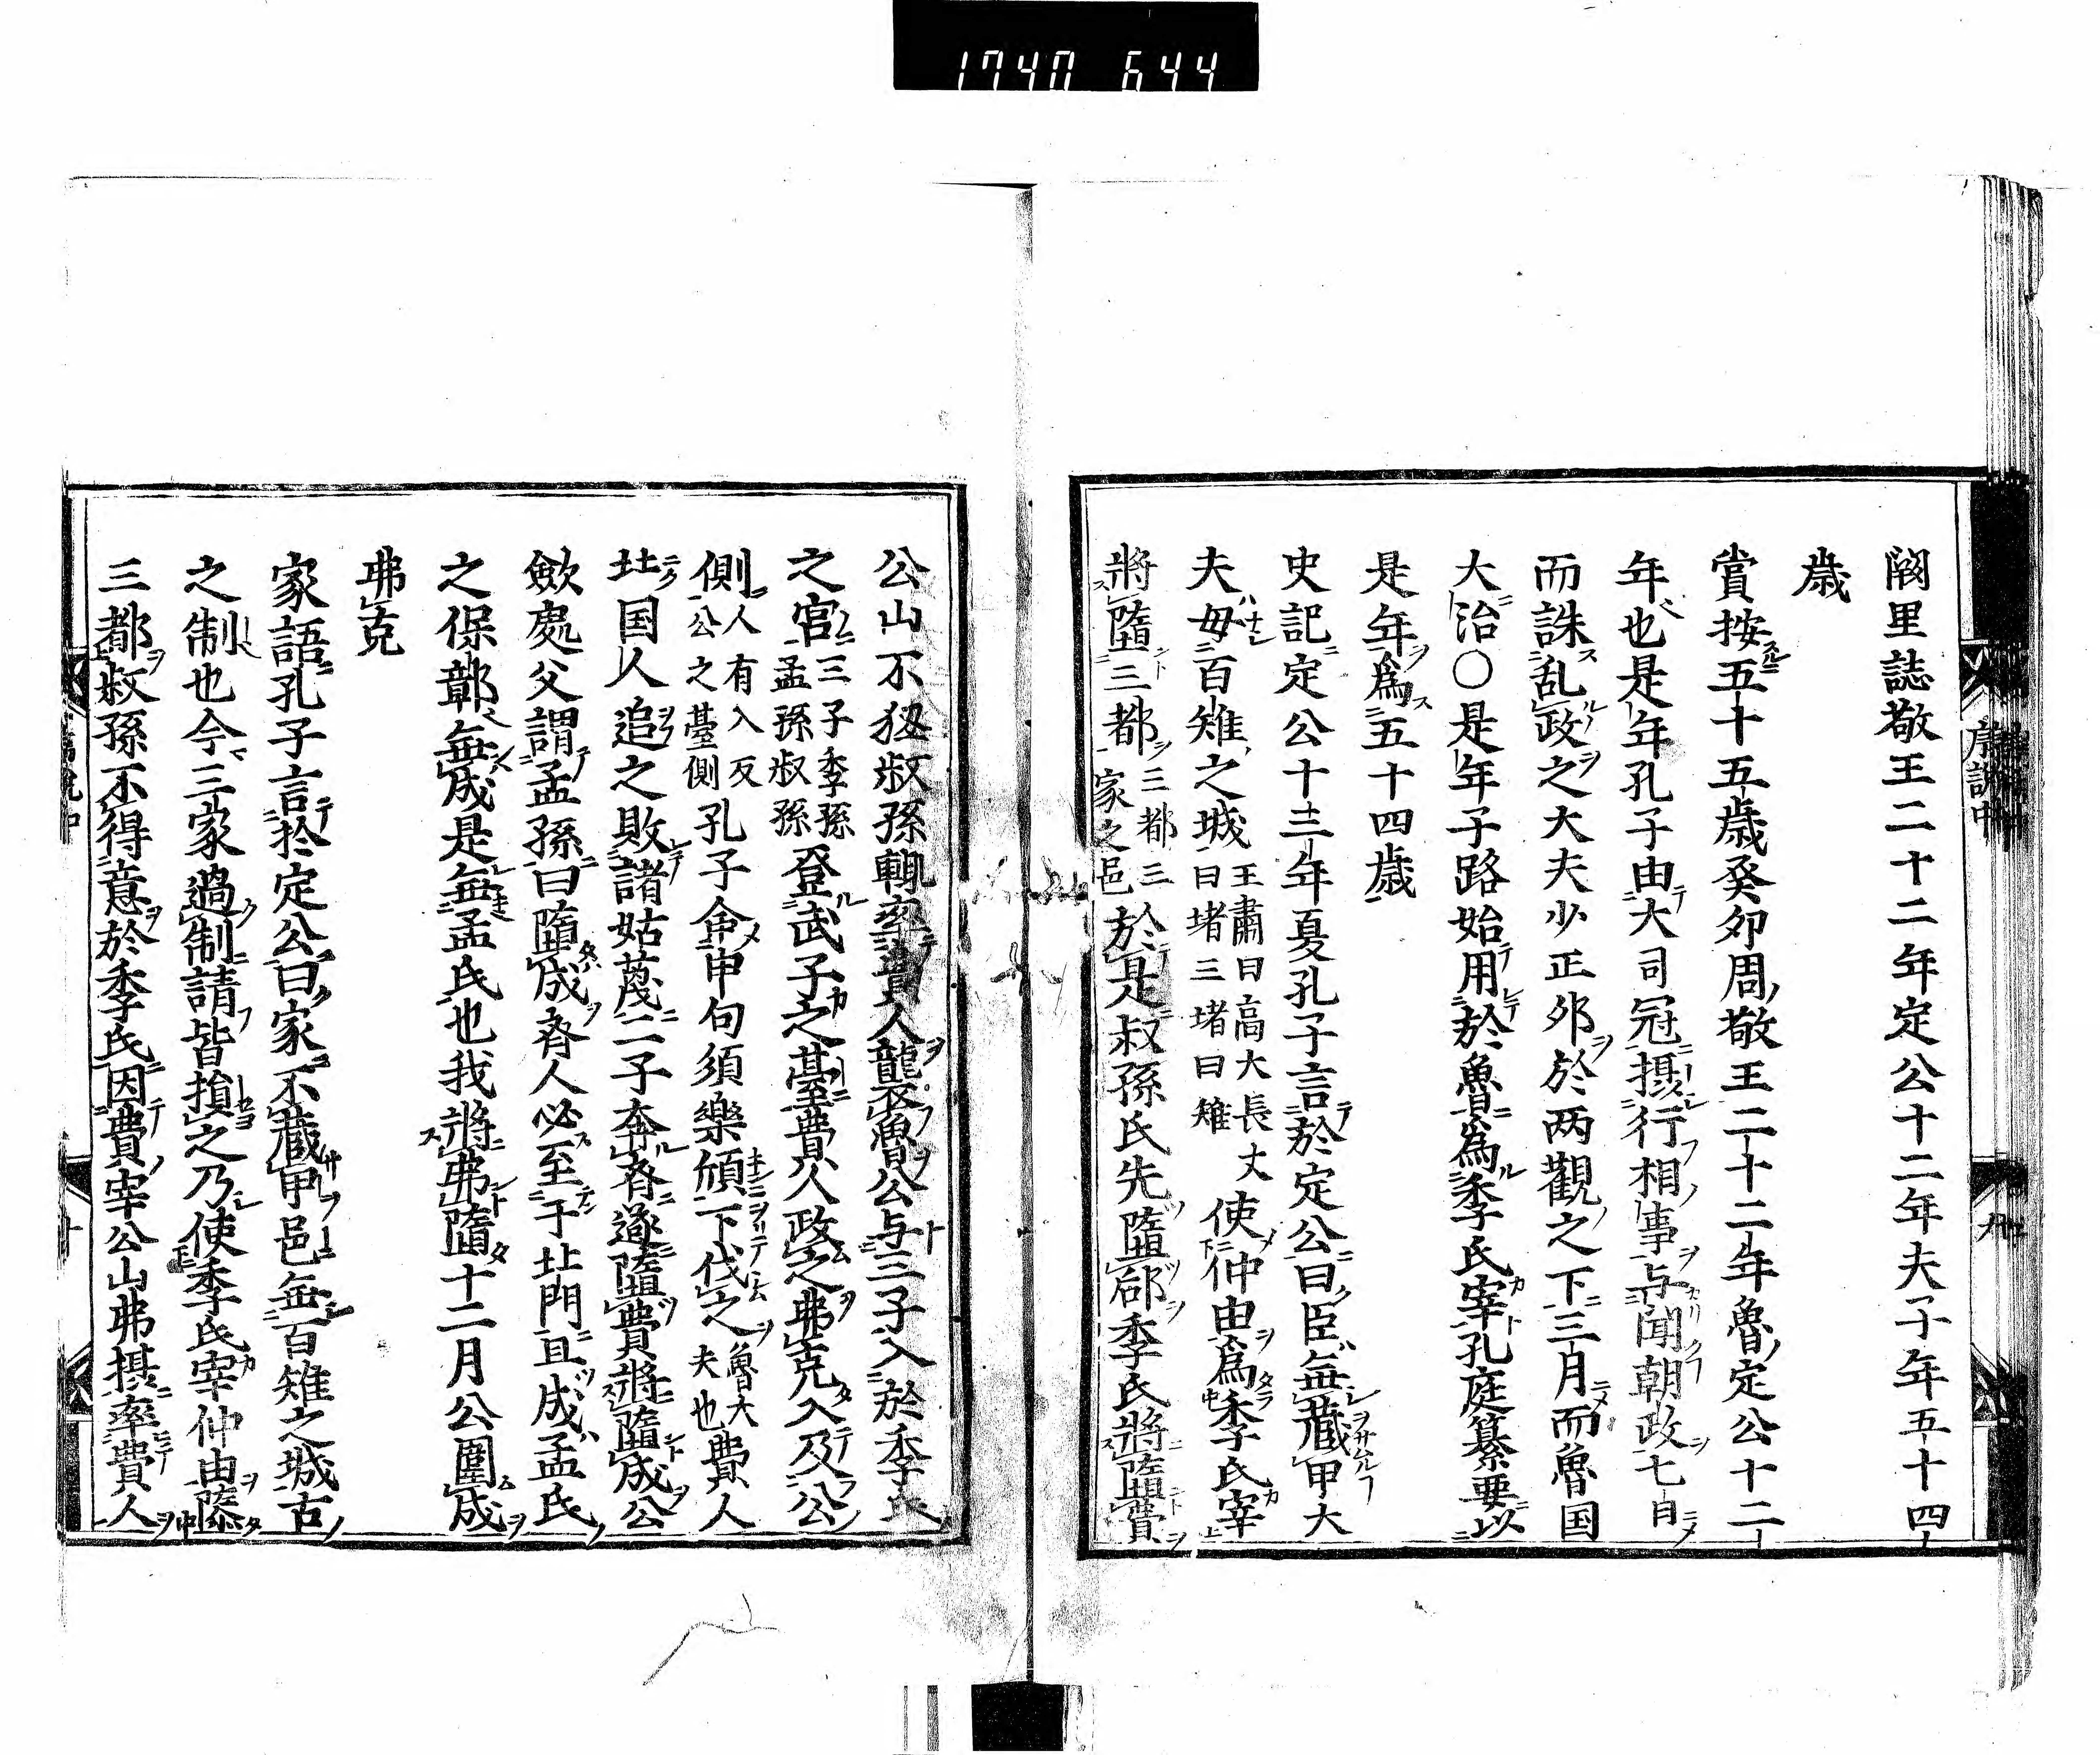 1740 644
闕里誌敬王二十二年定公十二年夫子年五十四
歳
嘗按五十五歳癸夘周敬王二十二年魯定公十二
年也是年孔子由大司冠摂行相事与聞朝政七日
而誅乱政之大夫少正夘於两觀之下三月而魯国
大治〇是年子路始用於魯為季氏宰孔庭纂要以
是年為五十四歳
史記定公十三年夏孔子言於定公曰臣無藏甲大
夫毋百雉之城王肅曰高大長丈曰堵三堵曰雉使仲由為季氏宰
將墮三都三都三家之邑於是叔孫氏先墮郈季氏將墮費
公山不狃叔孫輙率費人襲魯公与三子入於季氏
之宮三子季孫孟孫叔孫登武子之臺費人攻之弗克入及公
側人有入及公之臺側孔子命申句須樂頎下伐之魯大夫也費人
北国人追之敗諸姑蔑二子奔斉遂墮費將墮成公
歛處父謂孟孫曰墮成斉人必至于北門且成孟氏
之保鄣無成是無孟氏也我將弗墮十二月公圍成
弗克
家語孔子言於定公曰家不藏甲邑無百雉之城古
之制也今三家過制請皆損之乃使季氏宰仲由隳
三都叔孫不得意於季氏因費宰公山弗擾率費人
序説中
九